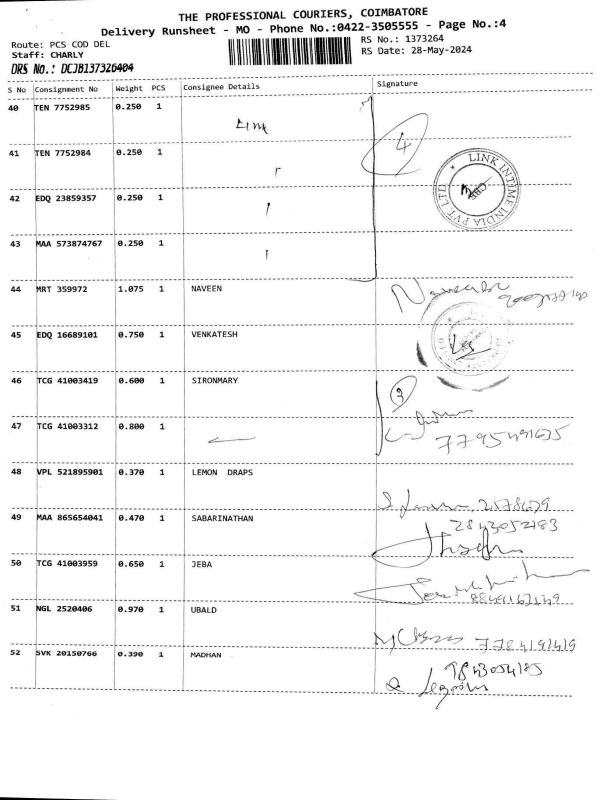 THE PROFESSIONAL COURIERS, COIMBATORE
Delivery Runsheet - MO - Phone No.:0422-3505555 - Page No.:4
Route: PCS COD DEL
Staff: CHARLY
DRS No.: DCJB137326404
RS No.: 1373264
RS Date: 28-May-2024
S No Consignment No Weight PCS Consignee Details Signature
40 TEN 7752985 0.250 1 Link
4
41 TEN 7752984 0.250 1
LINK INTIME INDIA PVT. LTD
CBE
42 EDQ 23859357 0.250 1
43 MAA 573874767 0.250 1
44 MRT 359972 1.075 1 NAVEEN
45 EDQ 16689101 0.750 1 VENKATESH
46 TCG 41003419 0.600 1 SIRONMARY
3
47 TCG 41003312 0.800 1
48 VPL 521895901 0.370 1 LEMON DRAPS
49 MAA 865654041 0.470 1 SABARINATHAN
50 TCG 41003959 0.650 1 JEBA
51 NGL 2520406 0.970 1 UBALD
52 SVK 20150766 0.390 1 MADHAN